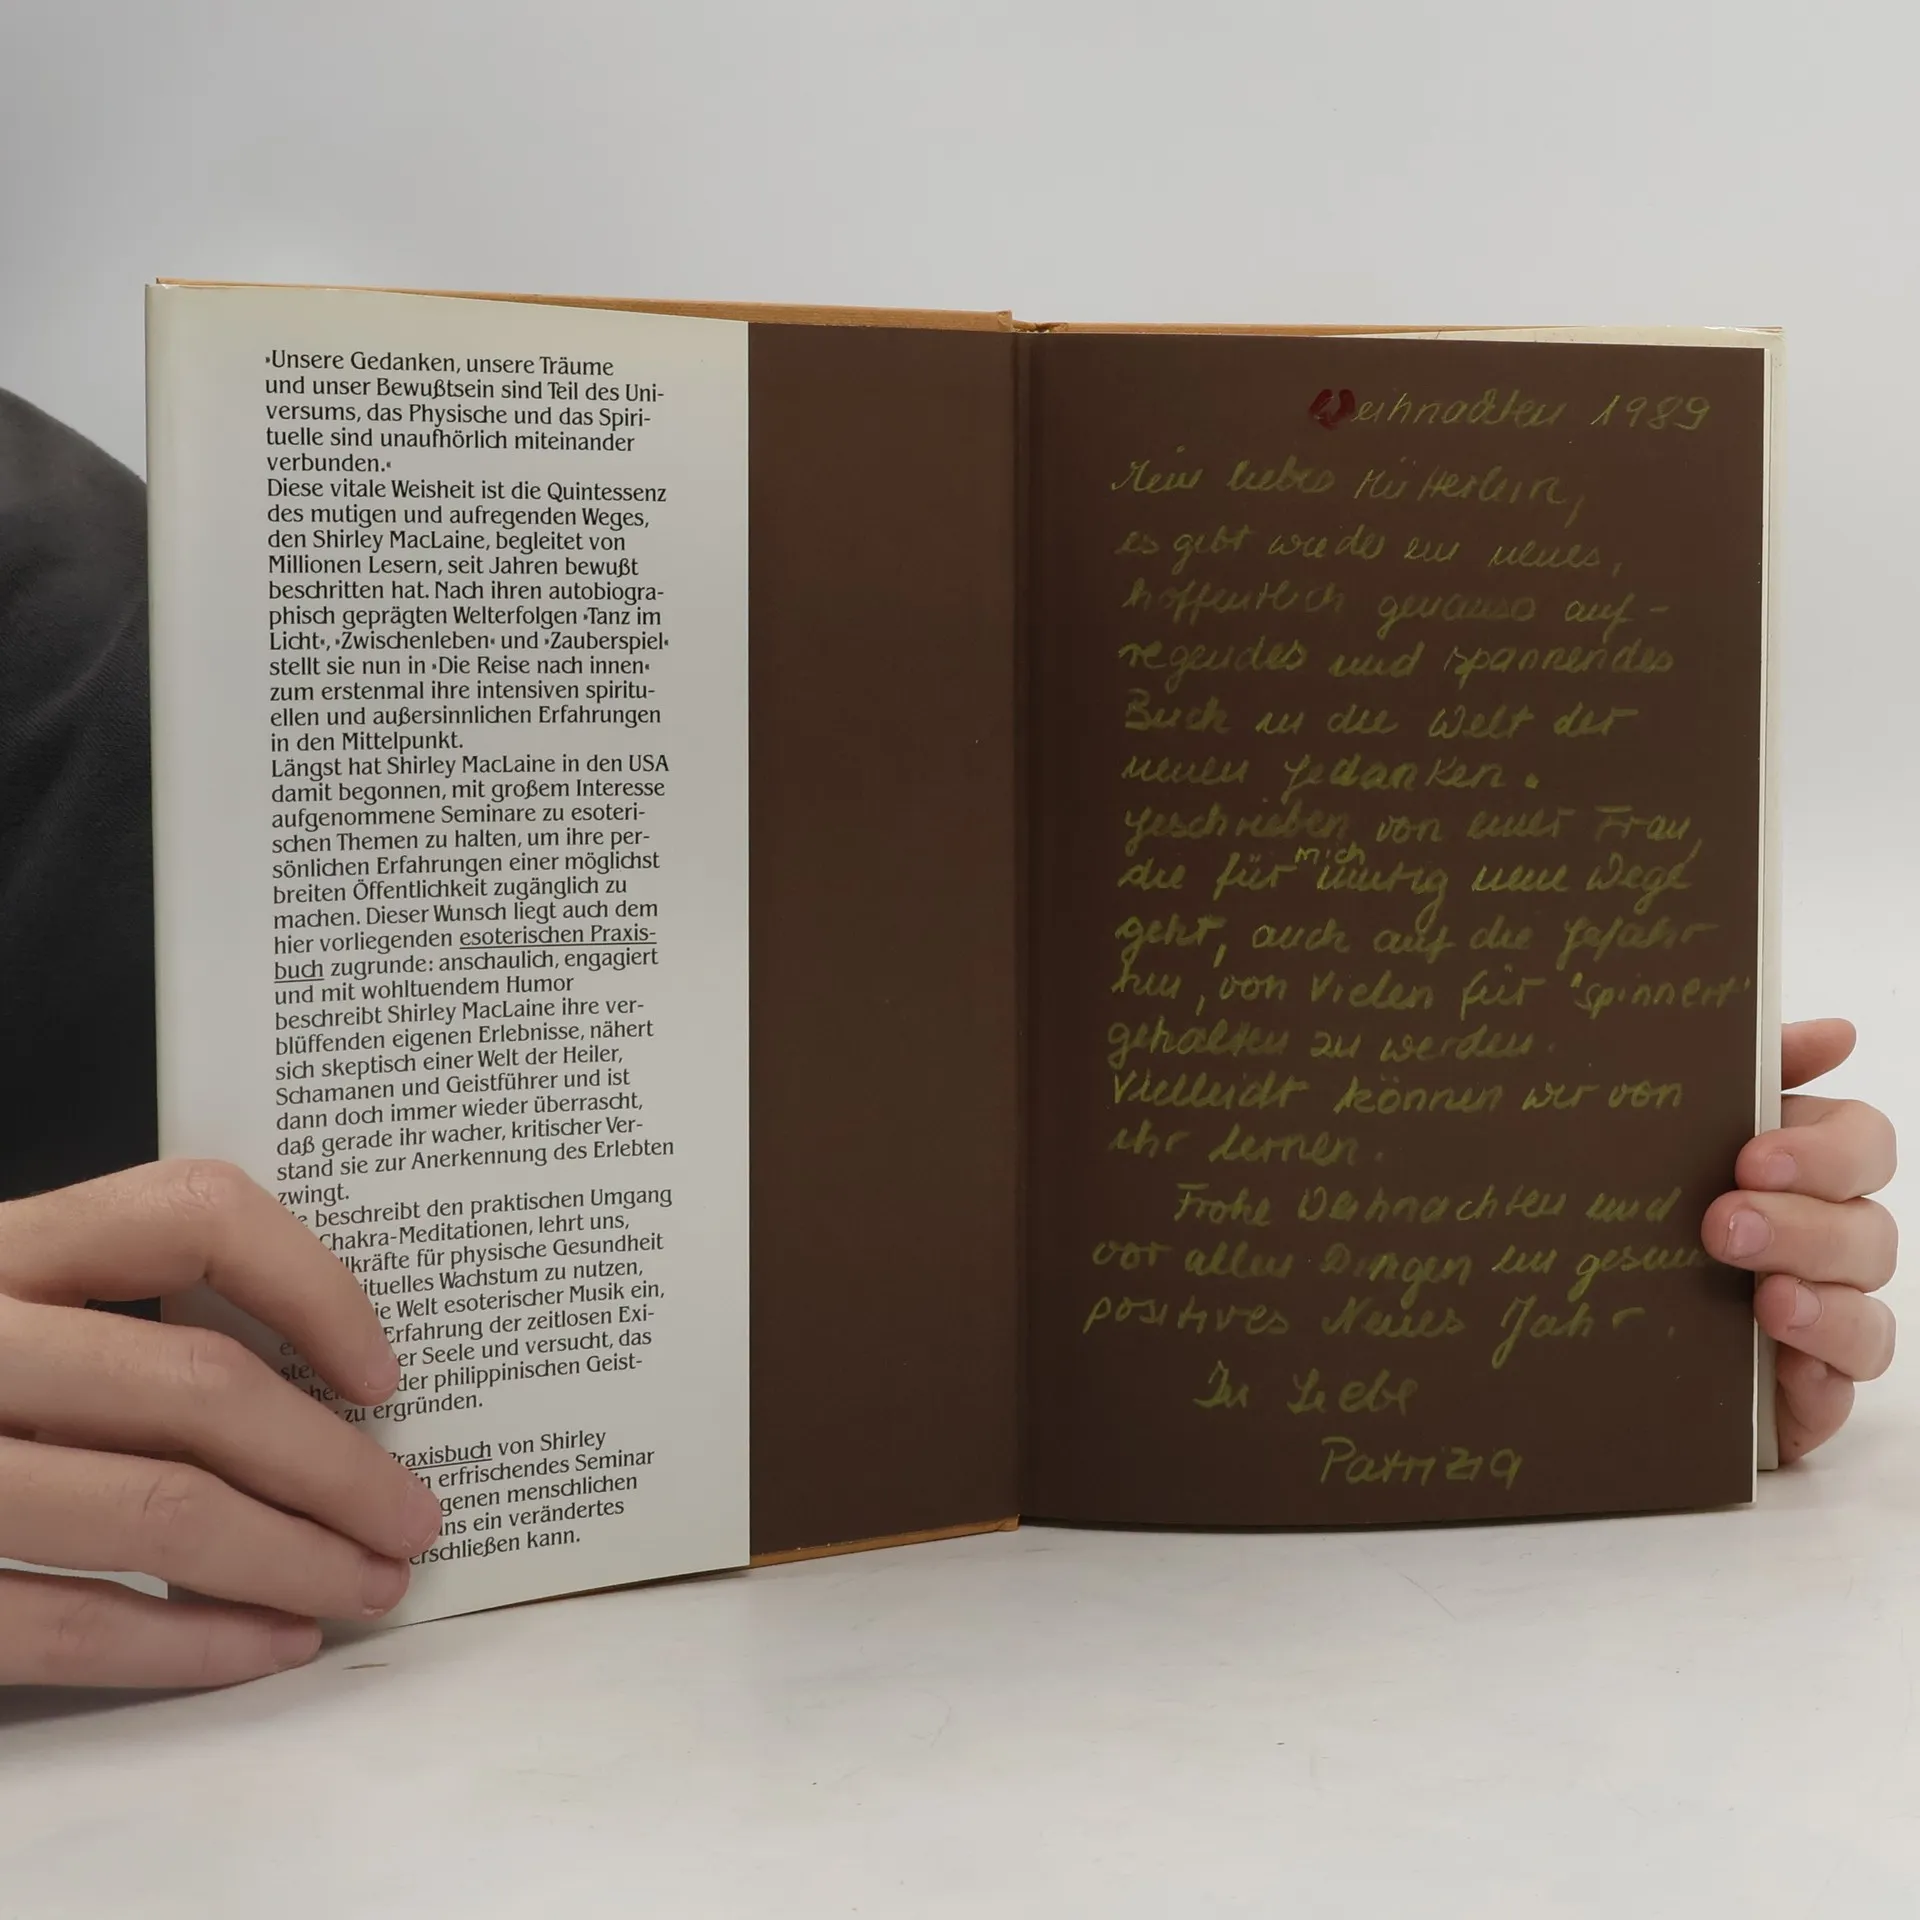 ›Unsere Gedanken, unsere Träume
und unser Bewußtsein sind Teil des Uni-
versums, das Physische und das Spiri-
tuelle sind unaufhörlich miteinander
verbunden.‹
Diese vitale Weisheit ist die Quintessenz
des mutigen und aufregenden Weges,
den Shirley MacLaine, begleitet von
Millionen Lesern, seit Jahren bewußt
beschritten hat. Nach ihren autobiogra-
phisch geprägten Welterfolgen ›Tanz im
Licht‹, ›Zwischenleben‹ und ›Zauberspiel‹
stellt sie nun in ›Die Reise nach innen‹
zum erstenmal ihre intensiven spiritu-
ellen und außersinnlichen Erfahrungen
in den Mittelpunkt.
Längst hat Shirley MacLaine in den USA
damit begonnen, mit großem Interesse
aufgenommene Seminare zu esoteri-
schen Themen zu halten, um ihre per-
sönlichen Erfahrungen einer möglichst
breiten Öffentlichkeit zugänglich zu
machen. Dieser Wunsch liegt auch dem
hier vorliegenden esoterischen Praxis-
buch zugrunde: anschaulich, engagiert
und mit wohltuendem Humor
beschreibt Shirley MacLaine ihre ver-
blüffenden eigenen Erlebnisse, nähert
sich skeptisch einer Welt der Heiler,
Schamanen und Geistführer und ist
dann doch immer wieder überrascht,
daß gerade ihr wacher, kritischer Ver-
stand sie zur Anerkennung des Erlebten
zwingt.
beschreibt den praktischen Umgang
Chakra-Meditationen, lehrt uns,
lkräfte für physische Gesundheit
ituelles Wachstum zu nutzen,
ie Welt esoterischer Musik ein,
Erfahrung der zeitlosen Exi-
er Seele und versucht, das
der philippinischen Geist-
zu ergründen.
Praxisbuch von Shirley
in erfrischendes Seminar
genen menschlichen
ns ein verändertes
erschließen kann.
Weihnachten 1989
Mein liebes Mütterlein,
es gibt wieder ein neues,
hoffentlich genauso auf-
regendes und spannendes
Buch in die Welt der
neuen Gedanken.
Geschrieben von einer Frau,
die für mich mutig neue Wege
geht, auch auf die Gefahr
hin, von Vielen für "spinnert"
gehalten zu werden.
Vielleicht können wir von
ihr lernen.
Frohe Weihnachten und
vor allen Dingen ein gesun
positives Neues Jahr.
In Liebe
Patrizia